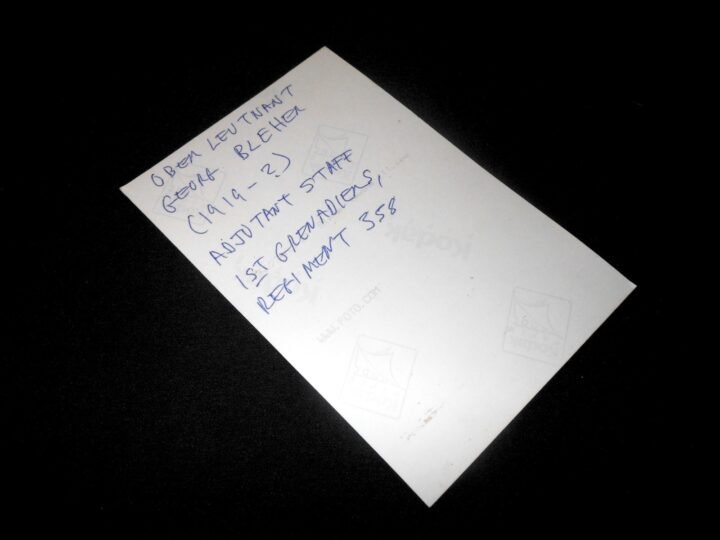 OBER LEUTNANT
GEORG BLEHER
(1919-?)
ADJUTANT STAFF
1ST GRENADIERS,
REGIMENT 358
Kodak
www.FOTO.COM